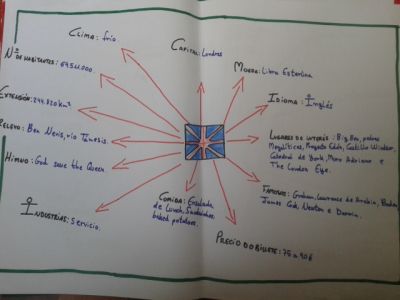 Clima: frío
Capital: Londres
Nº de habitantes:
Moneda: Libra Esterlina
Idioma: Inglés
Extensión: 244.820 km²
Relieve: Ben Nevis, río Támesis.
Lugares de interés: Big Ben,
Megalíticos, Proyecto Edén, Castillo Windsor,
Catedral de York, Muro Adriano e
The London Eye.
Himno: God save the Queen
Comida: Ensalada
de Lunch, Sandwiches
baked potatoes.
Famosos: Graham, Lawrence de Arabia,
James Cook, Newton e Darwin.
Industrias: Servicio.
Precio do billete: 75 a 90€